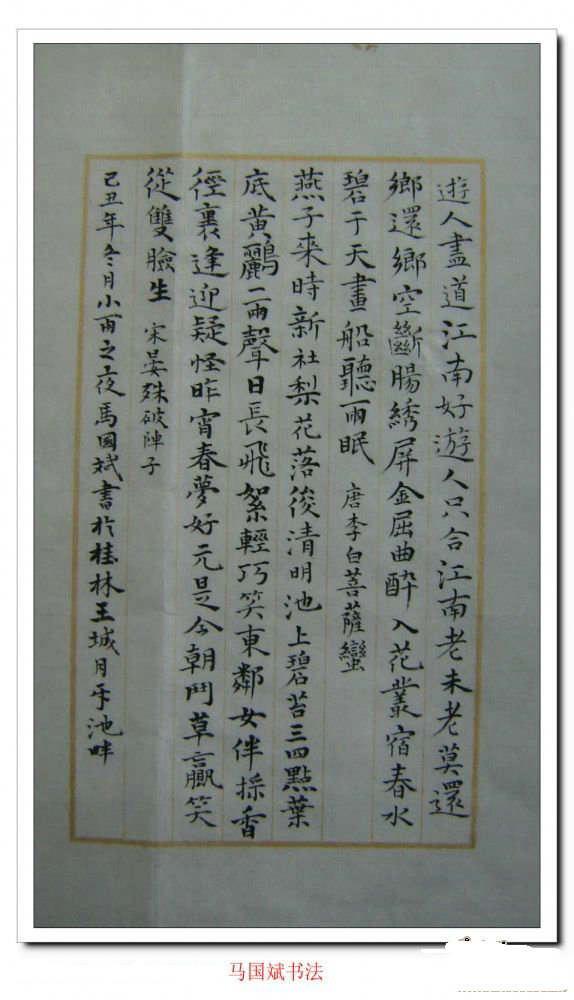 遊人盡道江南好遊人只合江南老未老莫還
鄉還鄉空斷腸綉屏金屈曲醉入花叢宿春水
碧于天畫船聽雨眠 唐李白菩薩蠻
燕子來時新社梨花落後清明池上碧苔三四點葉
底黃鸝一兩聲日長飛絮輕巧笑東鄰女伴採香
徑裏逢迎疑怪昨宵春夢好元是今朝鬥草贏笑
從雙臉生 宋晏殊破陣子
己丑年冬月小雨之夜馬國斌書於桂林王城月牙池畔
马国斌书法